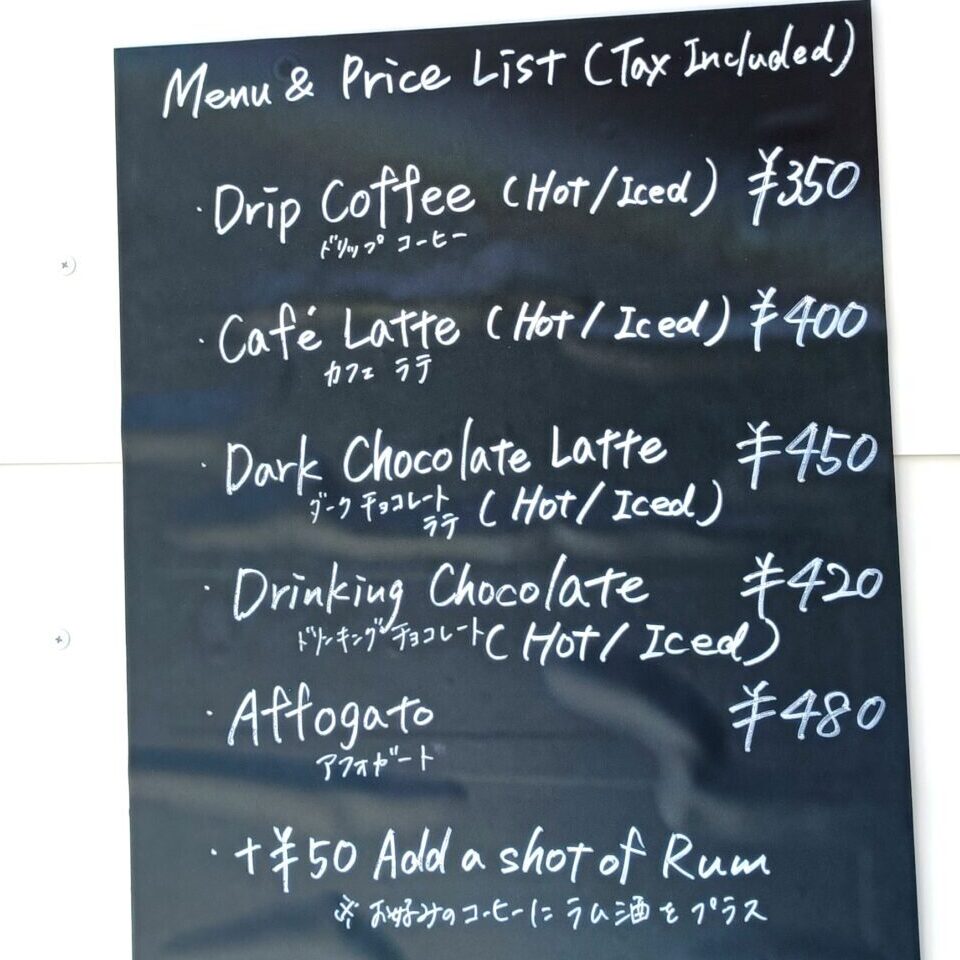 Menu & Price List (Tax Included)
・Drip Coffee (Hot/Iced) ¥350
ドリップ コーヒー
・Café Latte (Hot/Iced) ¥400
カフェ ラテ
・Dark Chocolate Latte ¥450
ダーク チョコレート
ラテ (Hot/Iced)
・Drinking Chocolate ¥420
ドリンキング チョコレート (Hot/Iced)
・Affogato ¥480
アフォガート
・+¥50 Add a shot of Rum
※ お好みのコーヒーに ラム酒を プラス